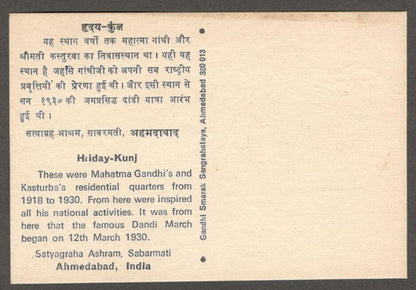 हृदय-कुंज
यह स्थान वर्षों तक महात्मा गांधी और
श्रीमती कस्तुरबा का निवासस्थान था। यही वह
स्थान है जहाँसे गांधीजी को अपनी सब राष्ट्रीय
प्रवृत्तियों की प्रेरणा हुई थी। और इसी स्थान से
सन १९३० की जगप्रसिद्ध दांडी यात्रा आरंभ
हुई थी।
सत्याग्रह आश्रम, साबरमती, अहमदाबाद
Hriday-Kunj
These were Mahatma Gandhi's and
Kasturba's residential quarters from
1918 to 1930. From here were inspired
all his national activities. It was from
here that the famous Dandi March
began on 12th March 1930.
Satyagraha Ashram, Sabarmati
Ahmedabad, India
Gandhi Smarak Sangrahalaya, Ahmedabad 380 013